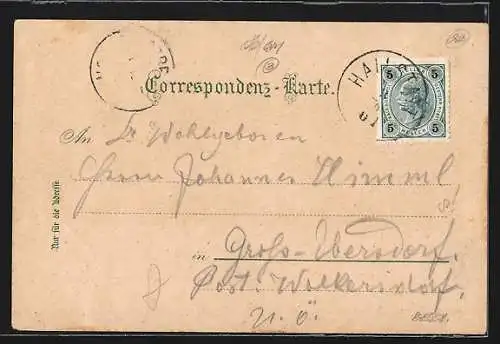 Correspondenz-Karte.
HALL
5 5
5 5
An Sr Wohlgeboren
Herrn Johannes Himml
in Groß-Ebersdorf.
Post. Wolkersdorf.
N. Ö.
Nur für die Adresse.